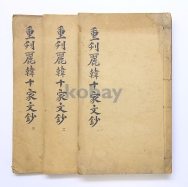 重刊麗韓十家文鈔
重刊麗韓十家文鈔
重刊麗韓十家文鈔
kobay